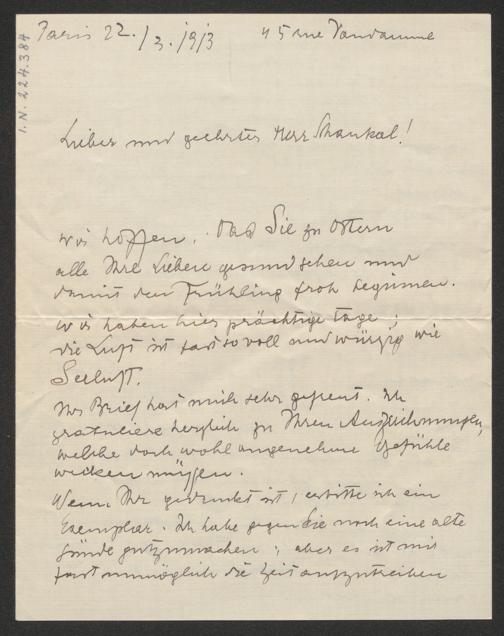 Paris 22./3. 1913 45 rue Vandamme
I.N. 224.384
Lieber und geehrter Herr Schaukal!
wir hoffen, dass Sie zu Ostern
alle Ihre Lieben gesund sehen und
damit den Frühling froh beginnen.
Wir haben hier prächtige Tage;
die Luft ist fast so voll und würzig wie
Seeluft.
Ihr Brief hat mich sehr gefreut. Ich
gratuliere herzlich zu Ihren Auszeichnungen,
welche doch wohl angenehme Gefühle
wecken müssen.
Wenn Ihr gedruckt ist, erbitte ich ein
Exemplar. Ich habe gegen Sie noch eine alte
Sünde gutzumachen; aber es ist mir
fast unmöglich die Zeit aufzutreiben